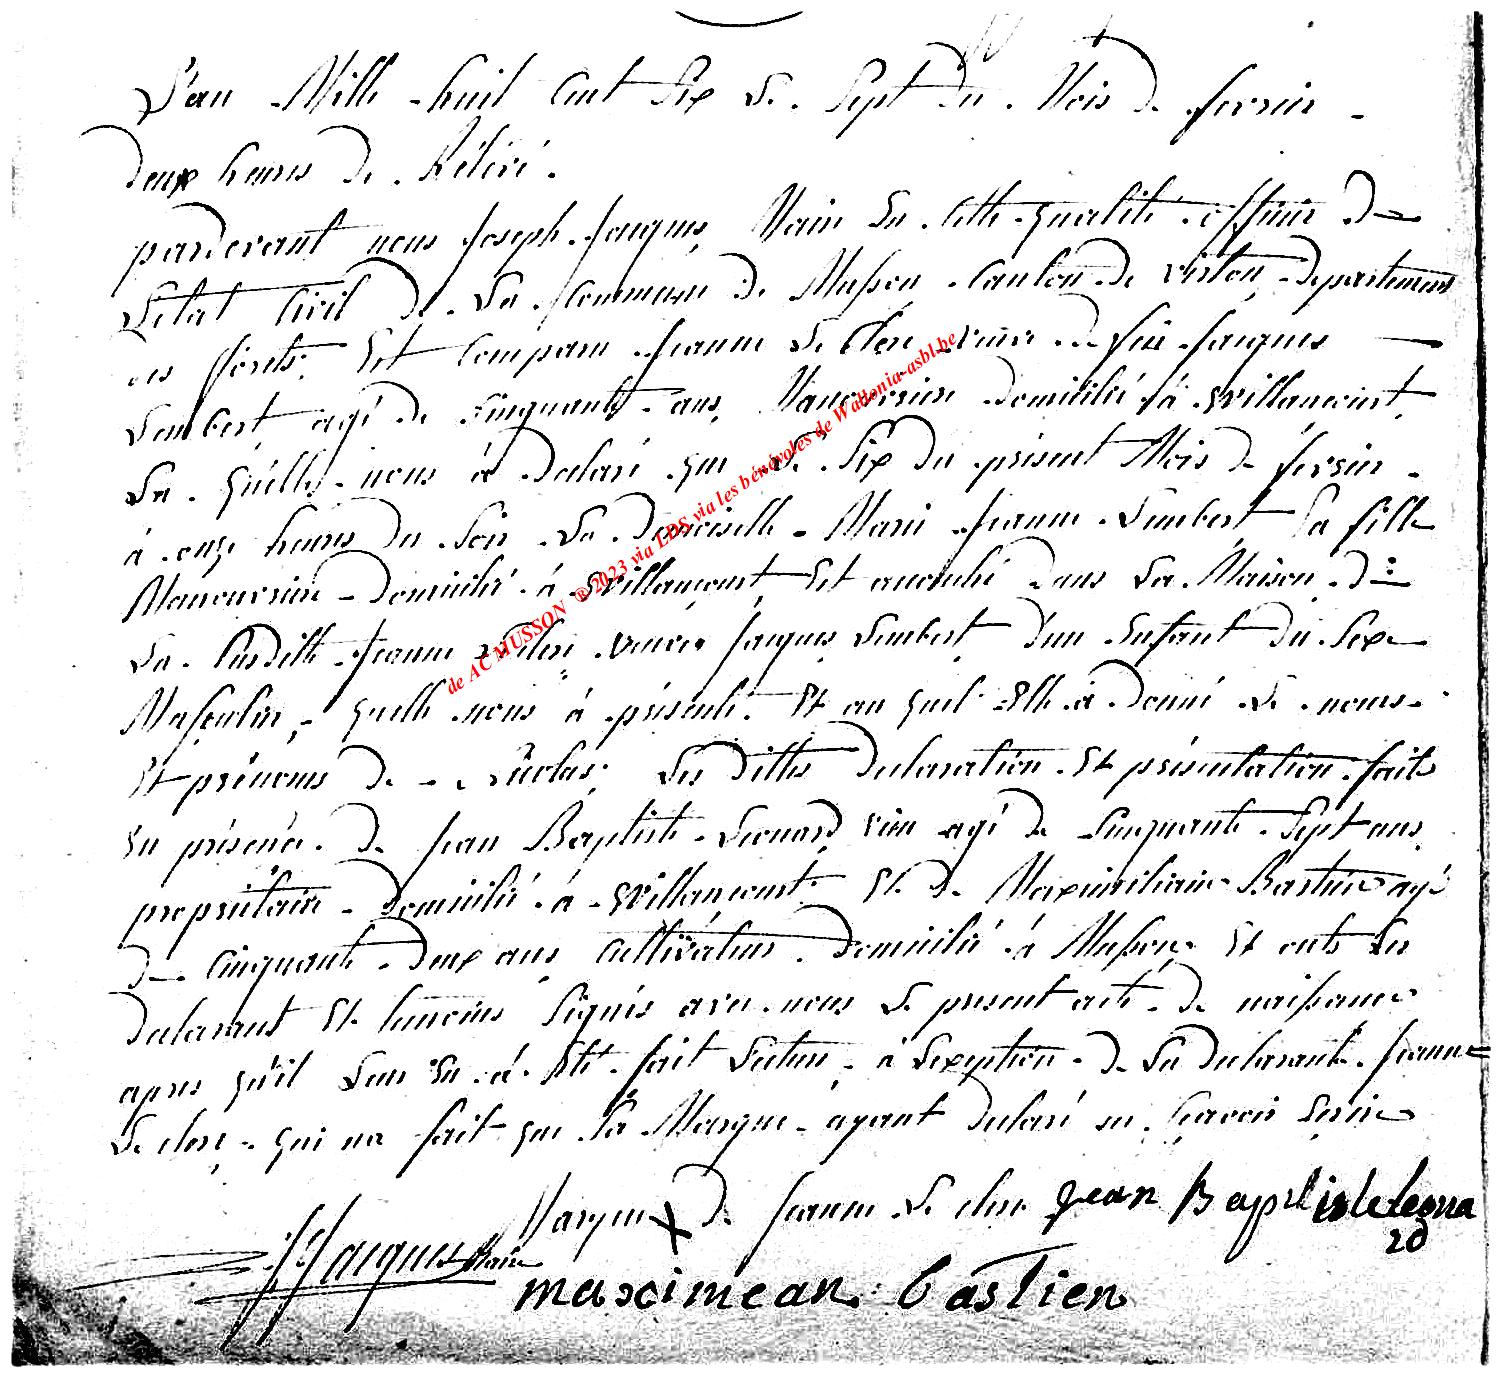 L'an Mille huit Cent Six Le Sept du Mois de fevrier
deux heures de Rélévé.
pardevant nous Joseph Jacques, Maire En Cette qualité officier de
L'état Civil de La Commune de Musson Canton de virton, departement
des forêts. Est Comparu Jeanne Le Clere veuve de feu Jacques
Lembert, agé de cinquante ans, Manouvriere domicilié à Willancourt,
La quelle nous à declaré que Le Six du présent Mois de fevrier
à onze heures du Soir La Demoiselle Marie Jeanne Lembert Sa fille
Manouvriere domicilié à Willancourt, Est accouché dans La Maison de
La Susditte Jeanne Le Clere veuve Jacques Lembert, d'un Enfant du Sexe
Masculin, quelle nous à présenté. Et au quel Elle à donné Le noms
Et prénoms de Nicolas; Les dittes declaration Et présentation faite
En présence de Jean Baptiste Leonard, agé de Cinquante Sept ans,
proprietaire domicilié à Willancourt. Et de Maximiliain Bastien agé
de Cinquante deux ans, Cultivateur domicilié à Musson, Et onts Les
declarant Et temoins Signés avec nous Le present acte de naissance
apres qu'il Leur En à Eté fait Lecture, à L'exeption de La declarante Jeanne
Le clere qui na fait que Sa Marque ayant declaré ne Sçavoir Ecrire
Marque X de Jeanne Le clere Jean Baptiste leona
rd
J Jacques Maire
maximean bastien
de AC MUSSON ® 2023 via LDS via les bénévoles de Wallonia-asbl.be